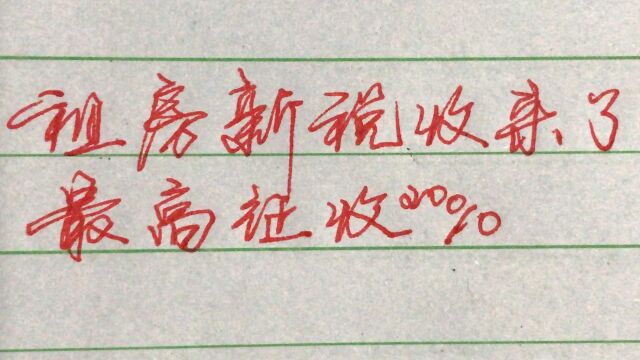 租房新税收来了
最高征收20%